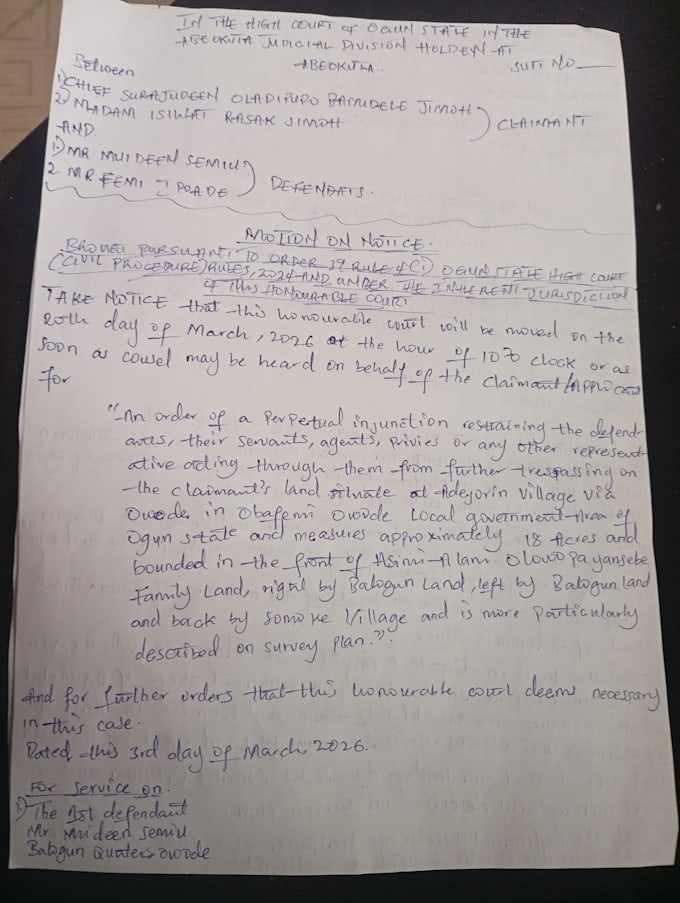 IN THE HIGH COURT OF OGUN STATE IN THE
ABEOKUTA JUDICIAL DIVISION HOLDEN AT
ABEOKUTA.
SUTI NO
Between
1) CHIEF SURAJUDEEN OLADIPUPO BAMIDELE JIMOH
2) MADAM ISIWAT RASAK JIMOH
) CLAIMANT
AND
1) MR MUIDEEN SEMIU
2 MR FEMI IPOADE
) DEFENDATS.
MOTION ON NOTICE.
PURSUANT TO ORDER 39 RULE 1 (1) OGUN STATE HIGH COURT
(CIVIL PROCEDURE) RULES, 2024 AND UNDER THE INHERENT JURISDICTION
OF THIS HONOURABLE COURT
TAKE NOTICE that this honourable court will be moved on the
20th day of March, 2026 at the hour of 10 clock or as
soon as cowsel may be heard on behalf of the claimant/Applicant
for
"An order of a perpetual injunction restraining the defend-
ants, their servants, agents, privies or any other represent-
ative acting through them from further trespassing on
the claimant's land situate at Adejorin village via
Owode in Obafemi Owode Local government Area of
Ogun state and measures approximately 18 Acres and
bounded in the front of Asimi-Alani Olowopayansebe
Family Land, right by Balogun Land, left by Balogun land
and back by Somoke Village and is more particularly
described on survey plan."
And for further orders that this honourable court deems necessary
in this case.
Dated this 3rd day of March, 2026.
For service on.
1) The 1st defendant
Mr Muideen Semiu
Balogun Quaters owode